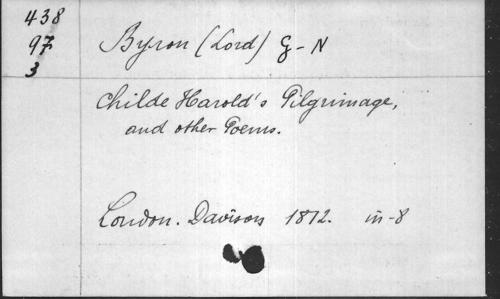 438
97
3
Byron (Lord) G-N
Childe Harold's Pilgrimage,
and other Poems.
London. Davison 1812. in-8